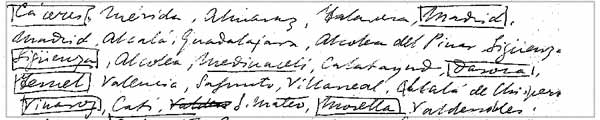 Cáceres, Mérida, Almaraz, Talavera, Madrid.
Madrid, Alcalá, Guadalajara, Alcolea del Pinar Sigüenza
Sigüenza, Alcolea, Medinaceli, Calatayud, Daroca,
Teruel Valencia, Sagunto, Villarreal, Alcalá de Chisvero
Vinaroz, Catí, S. Mateo, Morella, Valderrobles.